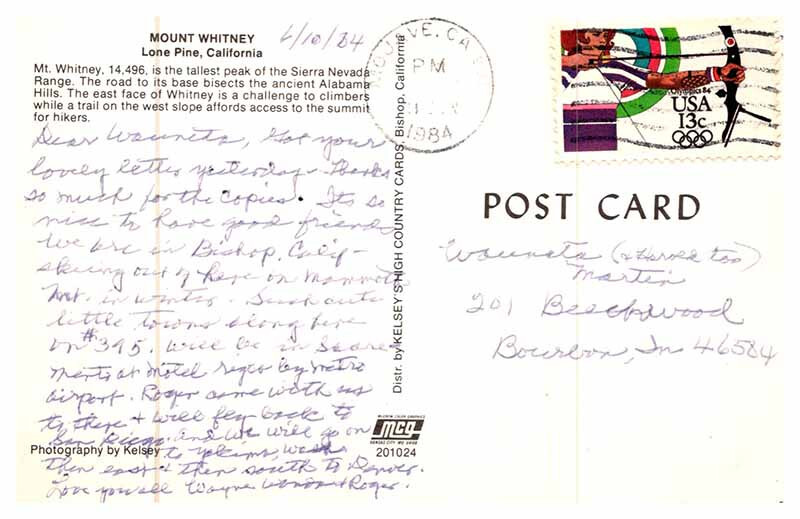 MOUNT WHITNEY
Lone Pine, California
6/10/84
Mt. Whitney, 14,496, is the tallest peak of the Sierra Nevada
Range. The road to its base bisects the ancient Alabama
Hills. The east face of Whitney is a challenge to climbers
while a trail on the west slope affords access to the summit
for hikers.
Dear Wauneta, Got your
lovely letter yesterday - Thanks
so much for the copies. Its so
nice to have good friends
We are in Bishop, Calif -
skiing out of here on Mammoth
Mt. in winter. Such cute
little towns along here
on #395. Will be in
at motel by metro
airport. Roger came with us
to there + will fly back to
San Diego and we will go on
to Yakima, Wash
then east + then south to Denver.
Love you all Wayne + Roger.
Photography by Kelsey
Distr. by KELSEY'S HIGH COUNTRY CARDS, Bishop, California
McGREW COLOR GRAPHICS
mcg
KANSAS CITY, MO 64108
201024
MOJAVE, CA
PM
1984
Olympics 84
USA
13c
POST CARD
Wauneta (& Harold too)
Martin
201 Beechwood
Bourbon, In 46584